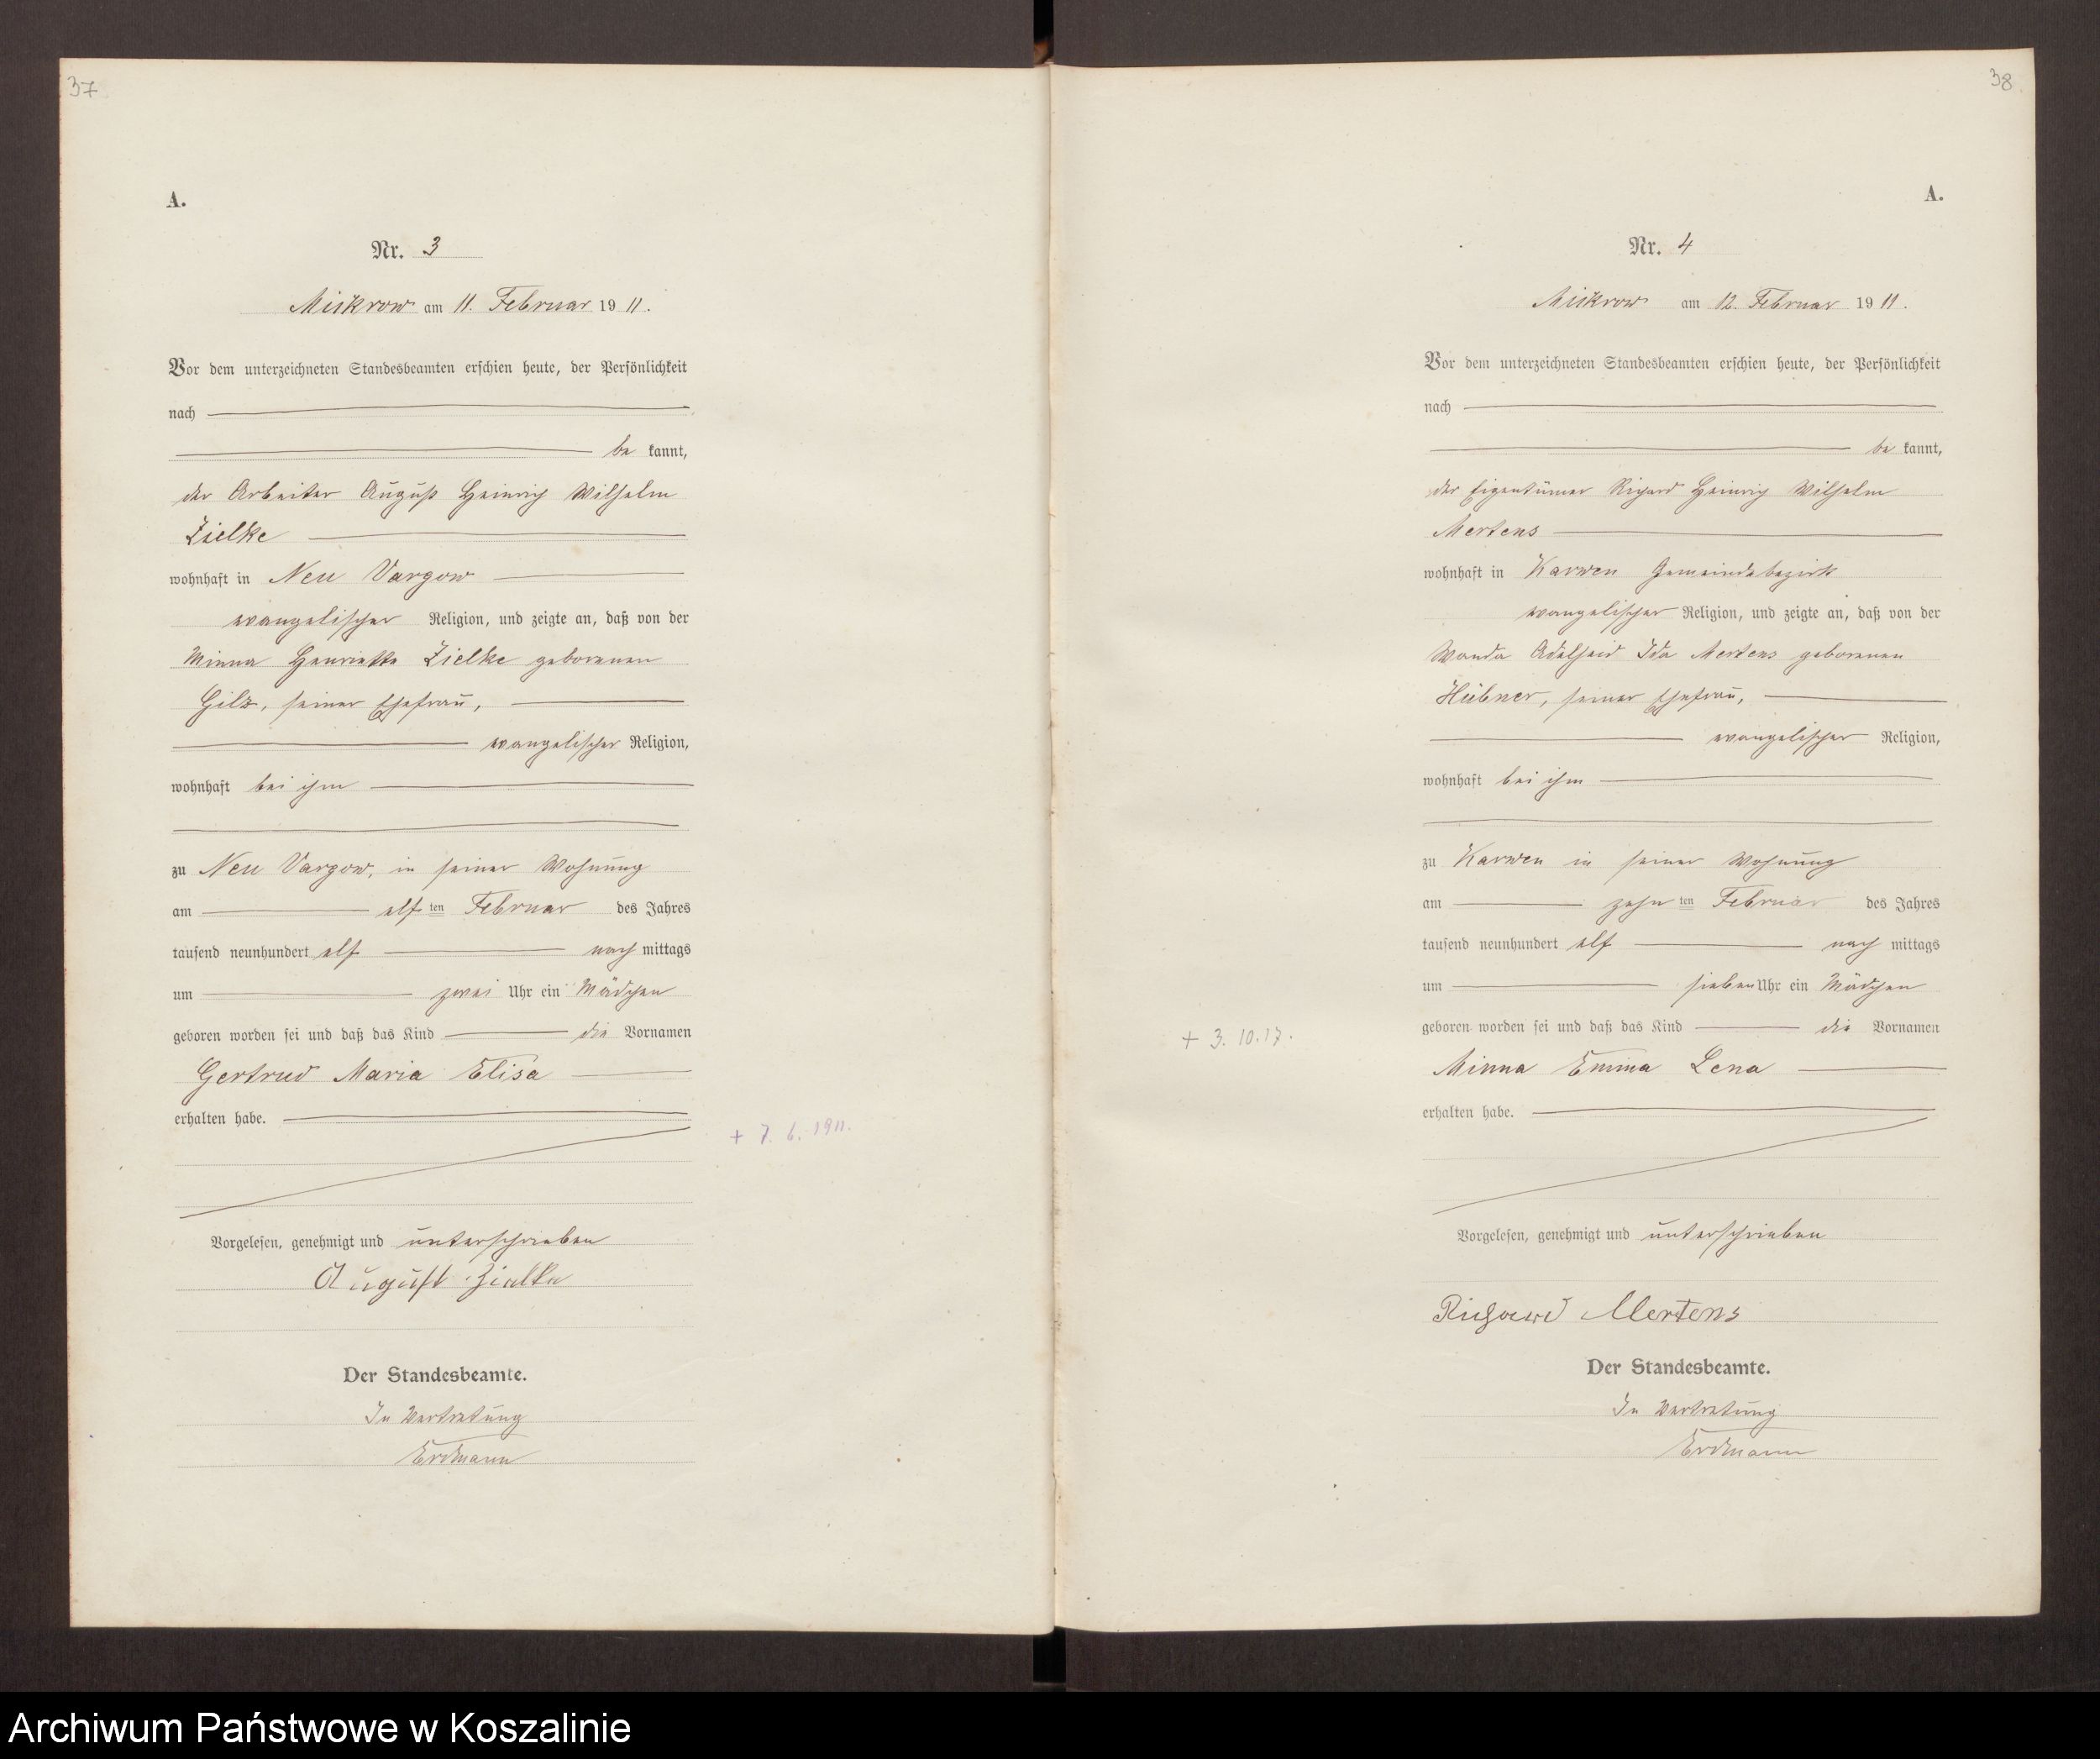 37
A.
Nr. 3
Mickrow am 11. Februar 1911.
Vor dem unterzeichneten Standesbeamten erschien heute, der Persönlichkeit
nach
be kannt,
der Arbeiter August Heinrich Wilhelm
Zielke
wohnhaft in Neu Vargow
evangelischer Religion, und zeigte an, daß von der
Minna Henriette Zielke geborenen
Gilz, seiner Ehefrau,
evangelischer Religion,
wohnhaft bei ihm
zu Neu Vargow, in seiner Wohnung
am elf ten Februar des Jahres
tausend neunhundert elf nach mittags
um zwei Uhr ein Mädchen
geboren worden sei und daß das Kind die Vornamen
Gertrud Maria Elisa
erhalten habe.
+ 7. 6. 1911.
Vorgelesen, genehmigt und unterschrieben
August Zielke
Der Standesbeamte.
In Vertretung
Erdmann
38
A.
Nr. 4
Mickrow am 12. Februar 1911.
Vor dem unterzeichneten Standesbeamten erschien heute, der Persönlichkeit
nach
be kannt,
der Eigentümer Richard Heinrich Wilhelm
Mertens
wohnhaft in Karwen Gemeindebezirk
evangelischer Religion, und zeigte an, daß von der
Wanda Adelheid Ida Mertens geborenen
Hübner, seiner Ehefrau,
evangelischer Religion,
wohnhaft bei ihm
zu Karwen in seiner Wohnung
am zehn ten Februar des Jahres
tausend neunhundert elf nach mittags
um sieben Uhr ein Mädchen
geboren worden sei und daß das Kind die Vornamen
+ 3. 10. 17.
Minna Emma Lena
erhalten habe.
Vorgelesen, genehmigt und unterschrieben
Richard Mertens
Der Standesbeamte.
In Vertretung
Erdmann
Archiwum Państwowe w Koszalinie